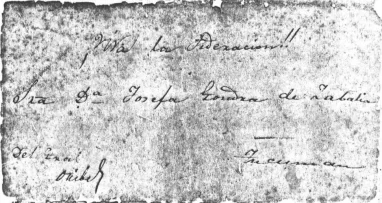 ¡Viva la Federacion!!
Sra Da Josefa Gondra de Zabalia
Tucuman
Del Gral
Oribe